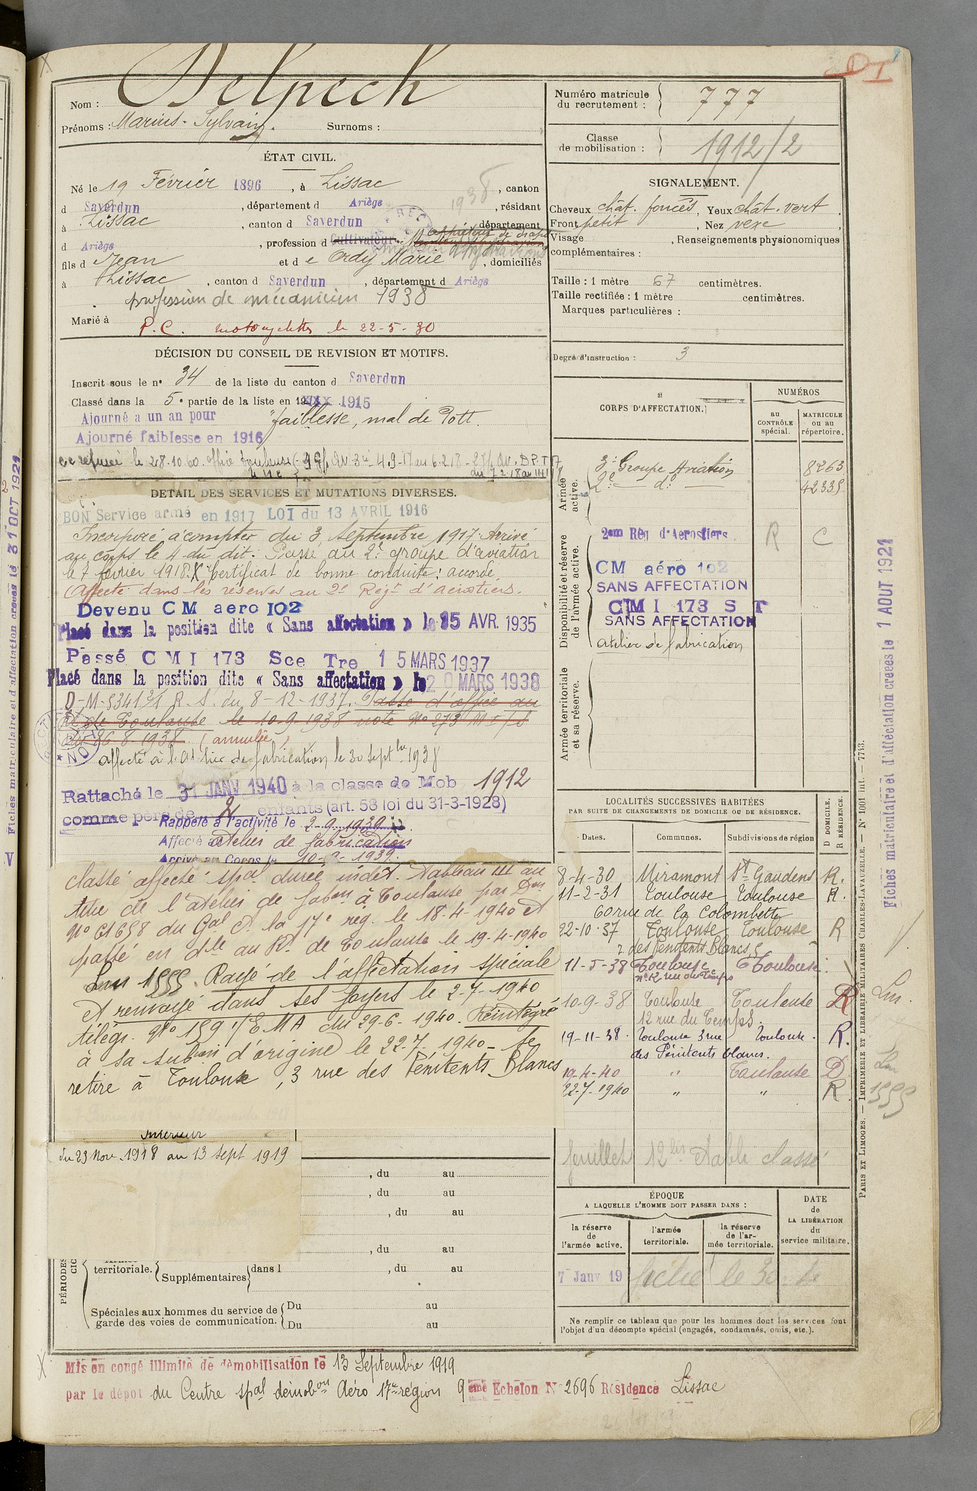 Nom : Delpech
Prénoms : Marius-Sylvain. Surnoms :
ÉTAT CIVIL.
Né le 19 Février 1896, à Lissac, canton
d Saverdun, département d Ariège, résidant
à Lissac, canton d Saverdun, département
d Ariège, profession d cultivateur
fils d Jean et d e Ordy Marie, domiciliés
à Lissac, canton d Saverdun, département d Ariège
profession de mécanicien 1938
Marié à
P.C. motocyclettes le 22-5-30
DÉCISION DU CONSEIL DE REVISION ET MOTIFS.
Inscrit sous le n° 34 de la liste du canton d Saverdun
Classé dans la 5e partie de la liste en 1915
Ajourné a un an pour faiblesse, mal de Pott.
Ajourné faiblesse en 1916
DÉTAIL DES SERVICES ET MUTATIONS DIVERSES.
BON Service armé en 1917 LOI du 13 AVRIL 1916
Incorporé à compter du 3 Septembre 1917 Arrivé
au corps le 4 du dit. Passé au 2e groupe d'aviation
le 7 février 1918 X Certificat de bonne conduite : accordé
Affecté dans les réserves au 2e Régt d'aérostiers.
Devenu CM aero 102
Placé dans la position dite « Sans affectation » le 15 AVR. 1935
Passé C M I 173 Sce Tre 15 MARS 1937
Placé dans la position dite « Sans affectation » le 20 MARS 1938
D-M-5341 R.S. du 8-12-1937. Passé d'office au
de Toulouse le 10-9-1938 note
(annulée)
affecté à l'at de fabrication le 30 Septbre 1938
Rattaché le 31 JANV 1940 à la classe de Mob 1912
comme père de 2 enfants (art. 58 loi du 31-3-1928)
Rappelé à l'activité le 2-9-1939
Affecté atelier de fabrication
Arrivé au Corps le 10-9-1939.
Classé affecté spal durée indet. Tableau III au
titre de l'atelier de fabon à Toulouse par Don
N° 61658 du Gal Ct la 17e reg. le 18-4-1940 et
passé en dle au RI de Toulouse le 19-4-1940
Rayé de l'affectation spéciale
et renvoyé dans ses foyers le 2-7-1940
télégr. N° 189 /EMA du 29-6-1940. Réintégré
à sa subon d'origine le 22-7-1940 Se
retire à Toulouse, 3 rue des Pénitents Blancs
Intérieur
du 23 Nov. 1918 au 13 Sept 1919
, du au
, du au
, du au
, du au
territoriale. Supplémentaires dans l , du au
PÉRIODES
Spéciales aux hommes du service de garde des voies de communication. Du au
Du au
Mis en congé illimité de démobilisation le 13 Septembre 1919
par le dépôt du Centre spal démobon Aéro 17e région 9eme Echelon N° 2696 Résidence Lissac
Numéro matricule du recrutement : 777
Classe de mobilisation : 1912/2
SIGNALEMENT.
Cheveux chât. foncés, Yeux chât. vert
Front petit, Nez vexe,
Visage , Renseignements physionomiques
complémentaires :
Taille : 1 mètre 67 centimètres.
Taille rectifiée : 1 mètre centimètres.
Marques particulières :
Degré d'instruction : 3
CORPS D'AFFECTATION.
NUMÉROS
AU CONTRÔLE spécial.
MATRICULE ou au répertoire.
Armée active.
3e Groupe Aviation 8263
2e — d° — 42335
Disponibilité et réserve de l'armée active.
2em Rég d'Aérostiers R C
CM aéro 102
SANS AFFECTATION
CMI 173 S T
SANS AFFECTATION
atelier de fabrication
Armée territoriale et sa réserve.
LOCALITÉS SUCCESSIVES HABITÉES
PAR SUITE DE CHANGEMENTS DE DOMICILE OU DE RÉSIDENCE.
Dates. Communes. Subdivisions de région D DOMICILE. R RÉSIDENCE.
8-4-30 Miramont St Gaudens R.
11-2-31 Toulouse Toulouse R.
60 rue de la Colombette
22-10-37 Toulouse Toulouse R
2 des Pénitents Blancs
11-5-38 Toulouse Toulouse
n° 12 rue du Temps
10-9-38 Toulouse Toulouse R
12 rue du Temps.
19-11-38 Toulouse 3 rue Toulouse R.
des Pénitents blancs.
19-4-40 " Toulouse D
22-7-1940 " " R
feuillet 12 bis établi classé
ÉPOQUE
A LAQUELLE L'HOMME DOIT PASSER DANS :
la réserve de l'armée active. l'armée territoriale. la réserve de l'armée territoriale.
DATE de LA LIBÉRATION du service militaire.
7 Janv 19
Ne remplir ce tableau que pour les hommes dont les services font
l'objet d'un décompte spécial (engagés, condamnés, omis, etc.).
PARIS ET LIMOGES. — IMPRIMERIE ET LIBRAIRIE MILITAIRES CHARLES-LAVAUZELLE. — N° 1001 int. — 7713.
Fiches matriculaire et d'affectation creees le 1 AOUT 1921
Fiches matriculaire et d'affectation creees le 31 OCT 1921